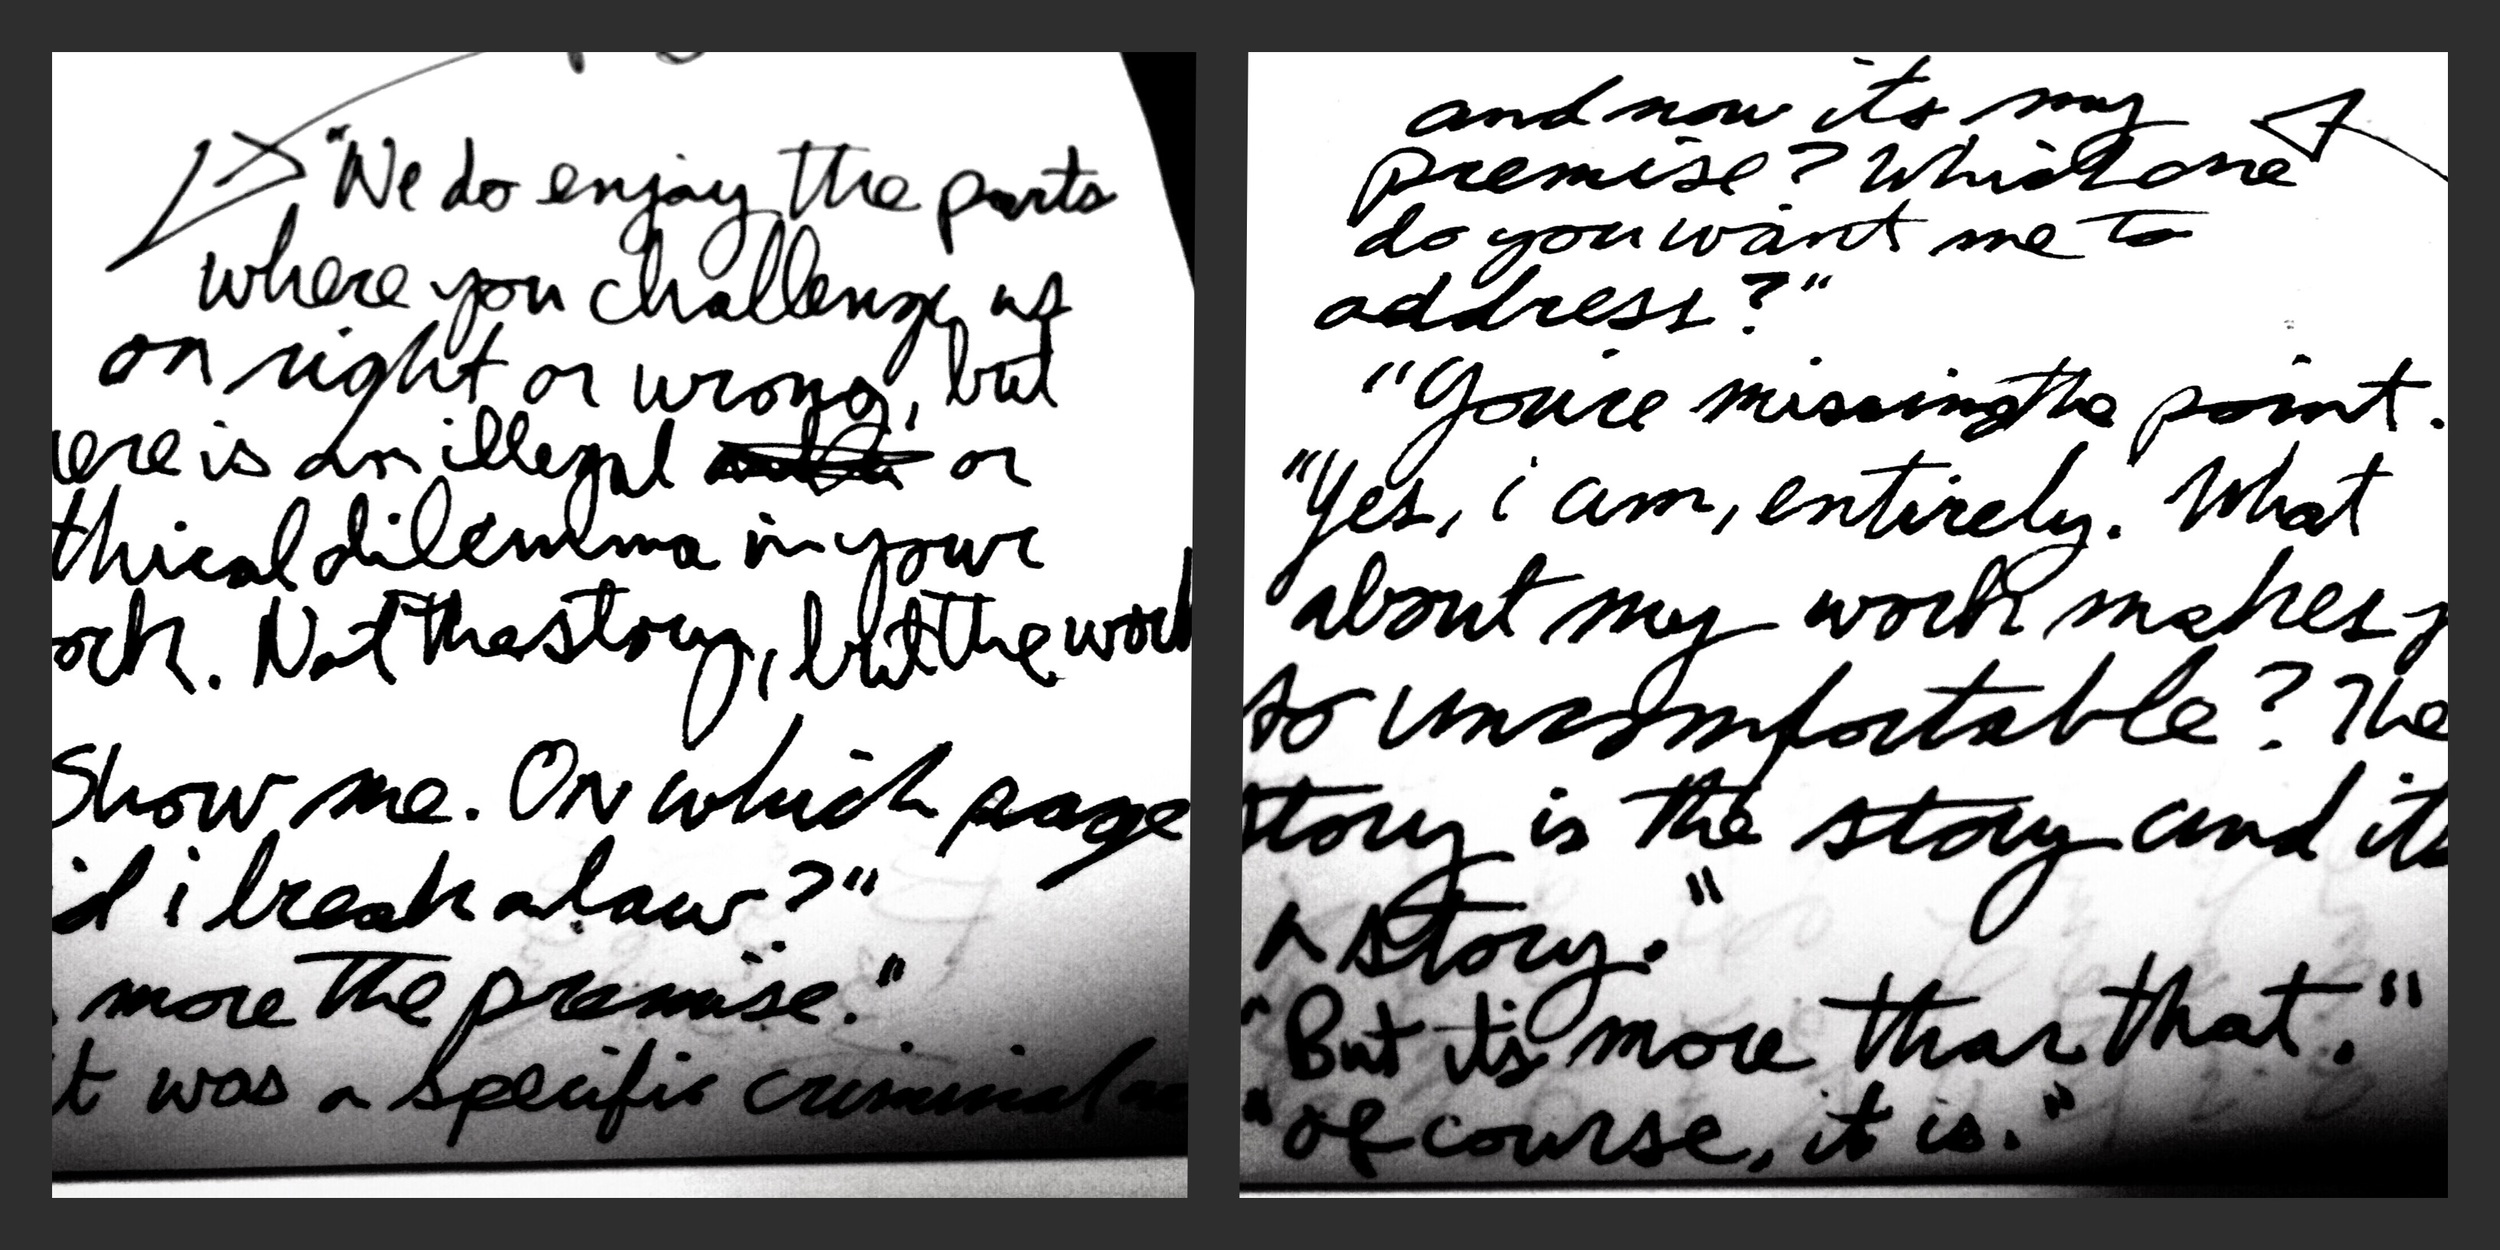 "We do enjoy the parts
where you challenge us
on right or wrong, but
ere is an illegal or
thical dilemma in your
ork. Not the story, but the work
Show me. On which page
id i break a law?"
more the premise."
it was a specific criminal
and now its my
premise? Which one
do you want me to
address?"
"You're missing the point.
"Yes, i am, entirely. What
about my work makes y
so uncomfortable? The
story is the story and its
a story."
"But it's more than that."
"Of course, it is."